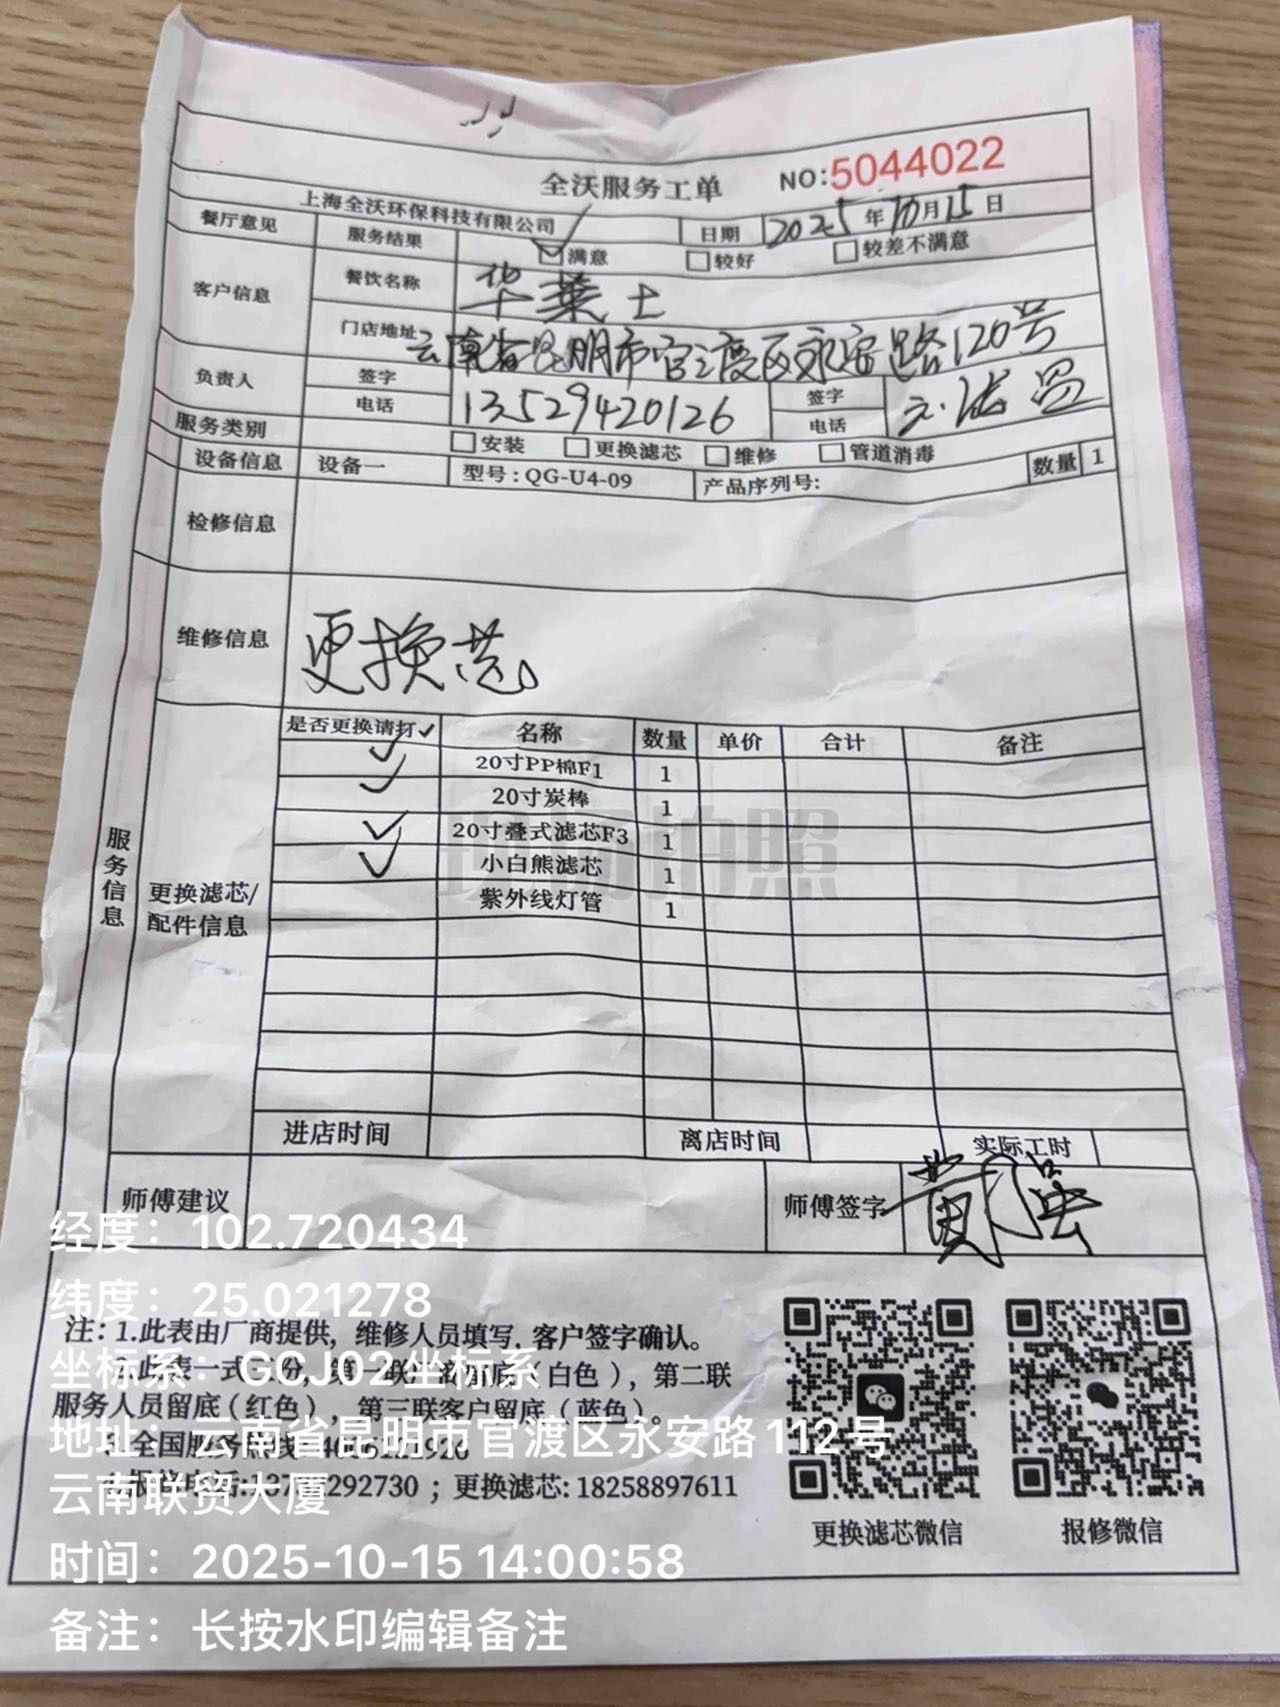 全沃服务工单 NO:5044022
上海全沃环保科技有限公司 日期 2025年10月15日
餐厅意见 服务结果 满意 较好 较差不满意
客户信息 餐饮名称 华莱士
门店地址 云南省昆明市官渡区永安路120号
负责人 签字 签字
电话 13529420126 电话
服务类别 安装 更换滤芯 维修 管道消毒
设备信息 设备一 型号:QG-U4-09 产品序列号: 数量 1
检修信息
维修信息 更换芯
服务信息
更换滤芯/
配件信息
是否更换请打✓ 名称 数量 单价 合计 备注
✓ 20寸PP棉F1 1
✓ 20寸炭棒 1
✓ 20寸叠式滤芯F3 1
✓ 小白熊滤芯 1
紫外线灯管 1
进店时间 离店时间 实际工时
师傅建议 师傅签字
注:1.此表由厂商提供,维修人员填写,客户签字确认。
此表一式三份,第一联厂商留底(白色),第二联
服务人员留底(红色),第三联客户留底(蓝色)。
全国服务热线
292730;更换滤芯:18258897611
更换滤芯微信 报修微信
经度:102.720434
纬度:25.021278
坐标系:GCJ02坐标系
地址:云南省昆明市官渡区永安路112号
云南联贸大厦
时间:2025-10-15 14:00:58
备注:长按水印编辑备注